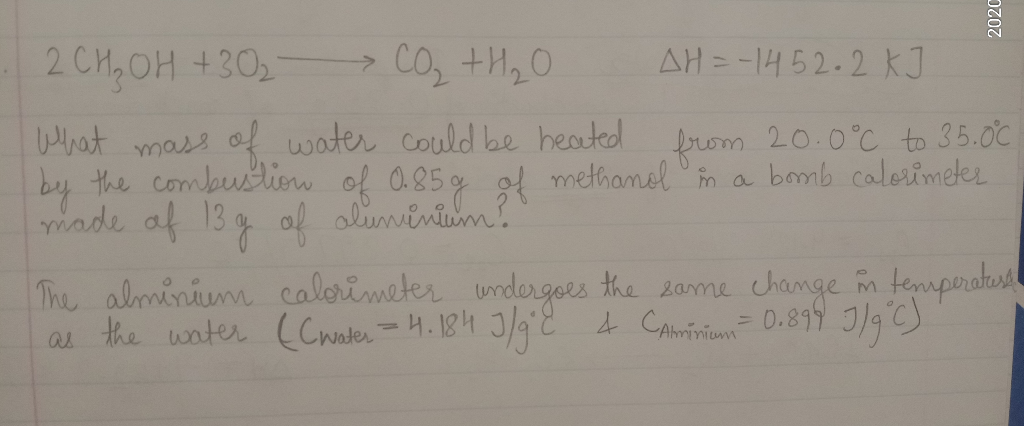 2020
2 CH3OH + 3O2 → CO2 + H2O ΔH = -1452.2 KJ
What mass of water could be heated from 20.0°C to 35.0°C
by the combustion of 0.85g of methanol in a bomb calorimeter
made of 13 g of aluminium?
The alminium calorimeter undergoes the same change in temperature
as the water (Cwater = 4.184 J/g°C & CAlminium = 0.899 J/g°C)